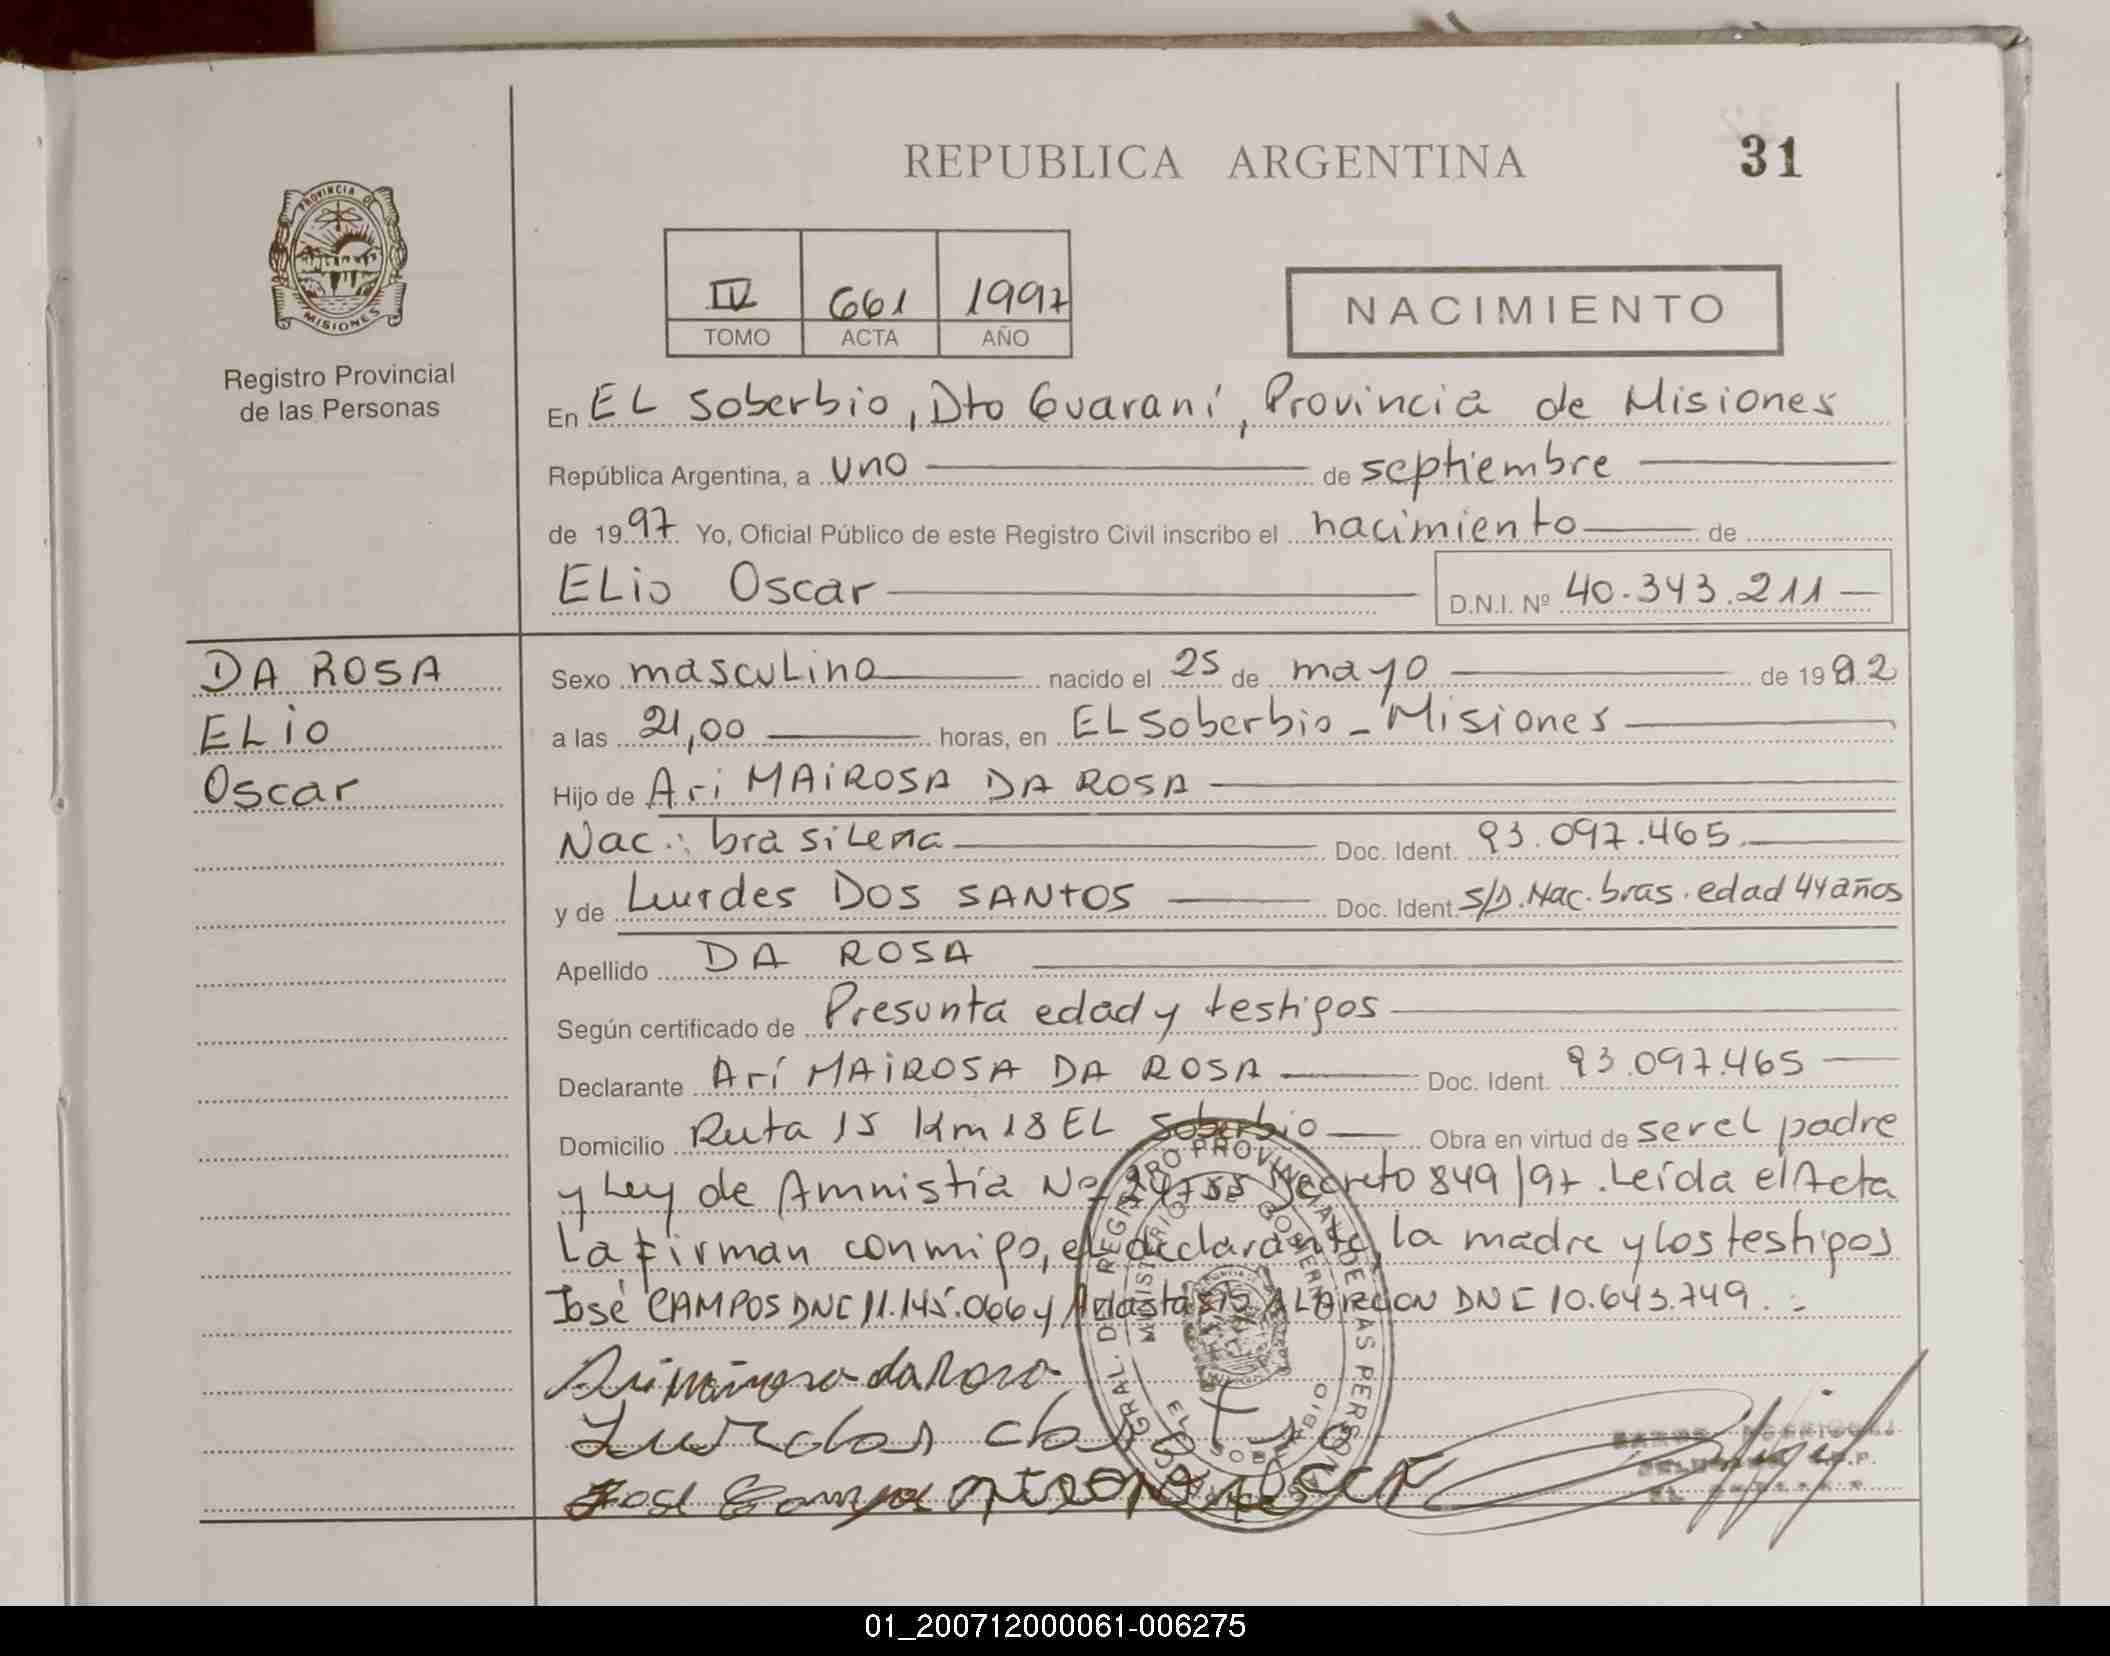 REPUBLICA ARGENTINA
31
PROVINCIA DE
MISIONES
Registro Provincial
de las Personas
IV 661 1997
TOMO ACTA AÑO
NACIMIENTO
En EL Soberbio, Dto Guaraní, Provincia de Misiones
República Argentina, a uno de septiembre
de 1997 Yo, Oficial Público de este Registro Civil inscribo el nacimiento de
ELio Oscar D.N.I. Nº 40.343.211
DA ROSA
ELio
Oscar
Sexo mascuLino nacido el 25 de mayo de 19
a las 21,00 horas, en EL Soberbio - Misiones
Hijo de Ari MAiROSA DA ROSA
Nac.: brasiLena Doc. Ident. 93.097.465
y de Lurdes DOS SANTOS Doc. Ident. S/D. Nac. bras. edad 44 años
Apellido DA ROSA
Según certificado de Presunta edad y testigos
Declarante Arí MAiROSA DA ROSA Doc. Ident. 93.097.465
Domicilio Ruta 15 Km 18 EL Soberbio Obra en virtud de ser eL padre
y Ley de Amnistía No 24755 Decreto 849/97. Leída el Acta
La firman conmigo, el declarante, la madre y los testigos
José CAMPOS DNI 11.145.066 y ALARCON DNI 10.643.749.
da Rosa
Lurdes
José Campos
REGISTRO PROVINCIAL DE LAS PERSONAS
MINISTERIO DE GOBIERNO
SOBERBIO
01_200712000061-006275